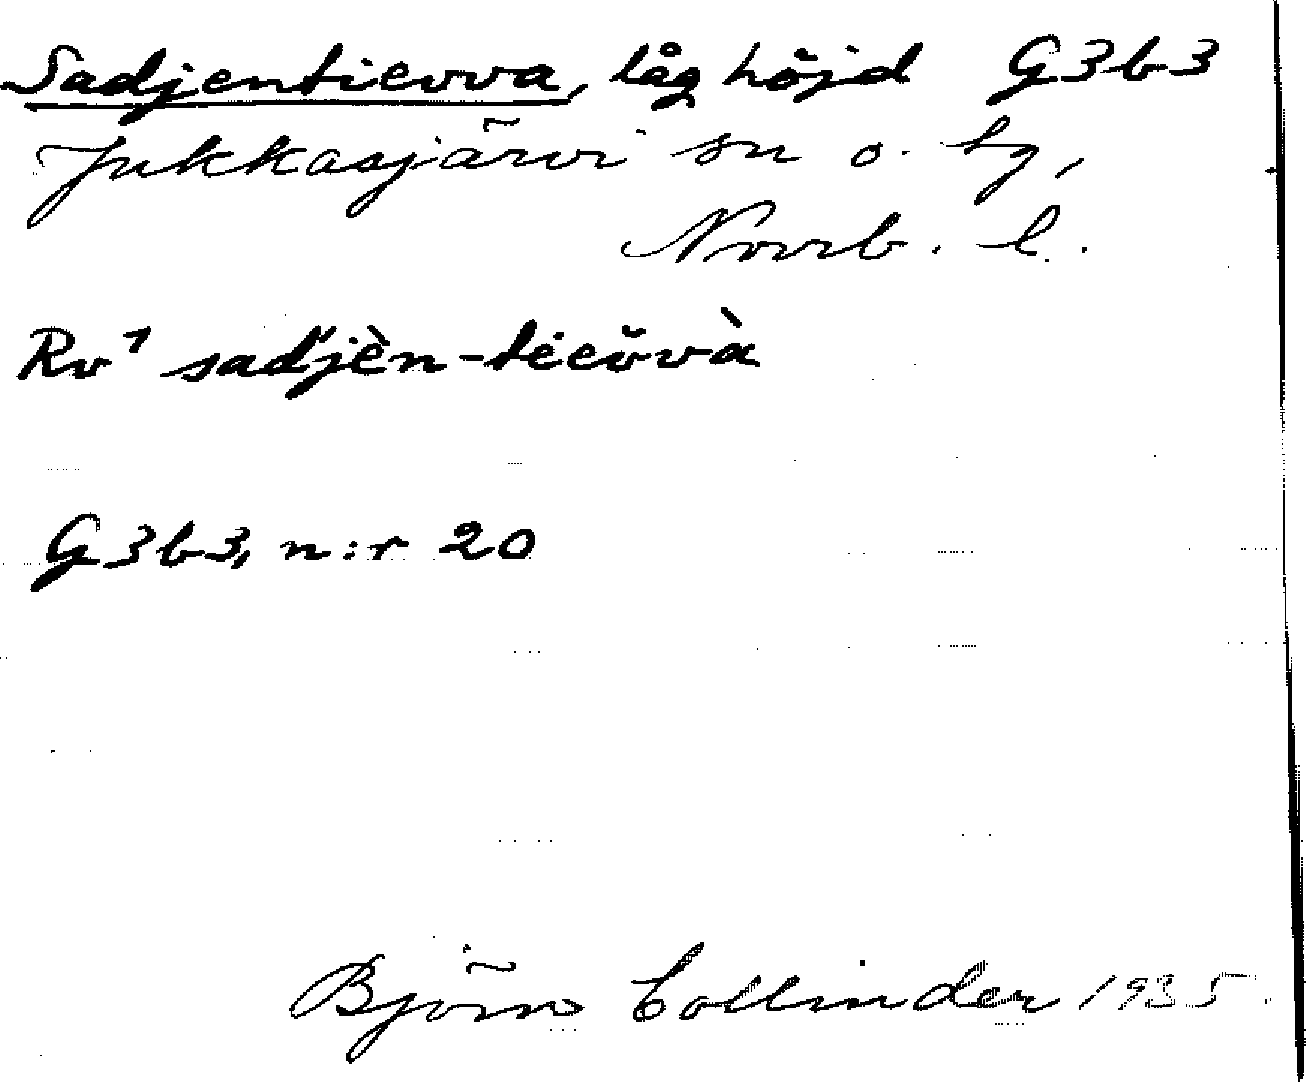 Sadjentievva, låg höjd G3b3
Jukkasjärvi sn o. lg,
Norrb. l.
Rv¹ sad'jèn-tiĕv̆và
G3b3, n:r 20
Björn Collinder 1935.